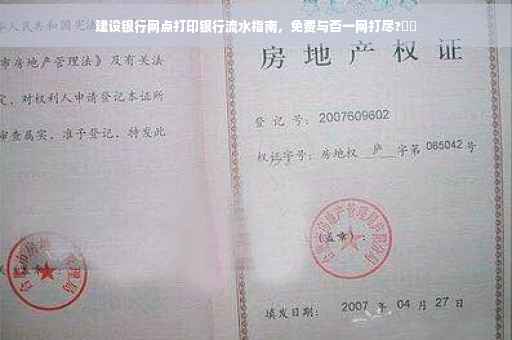 建设银行网点打印银行流水指南，免费与否一网打尽?
华人民共和国宪法
市房地产管理法》及有关法
定，对权利人申请登记本证所
审查属实，准予登记，特发此
房地产权证
登记号：2007609602
权证字号：房地权 庐 字第 065042 号
(盖章)：
填发日期： 2007 年 04 月 27 日